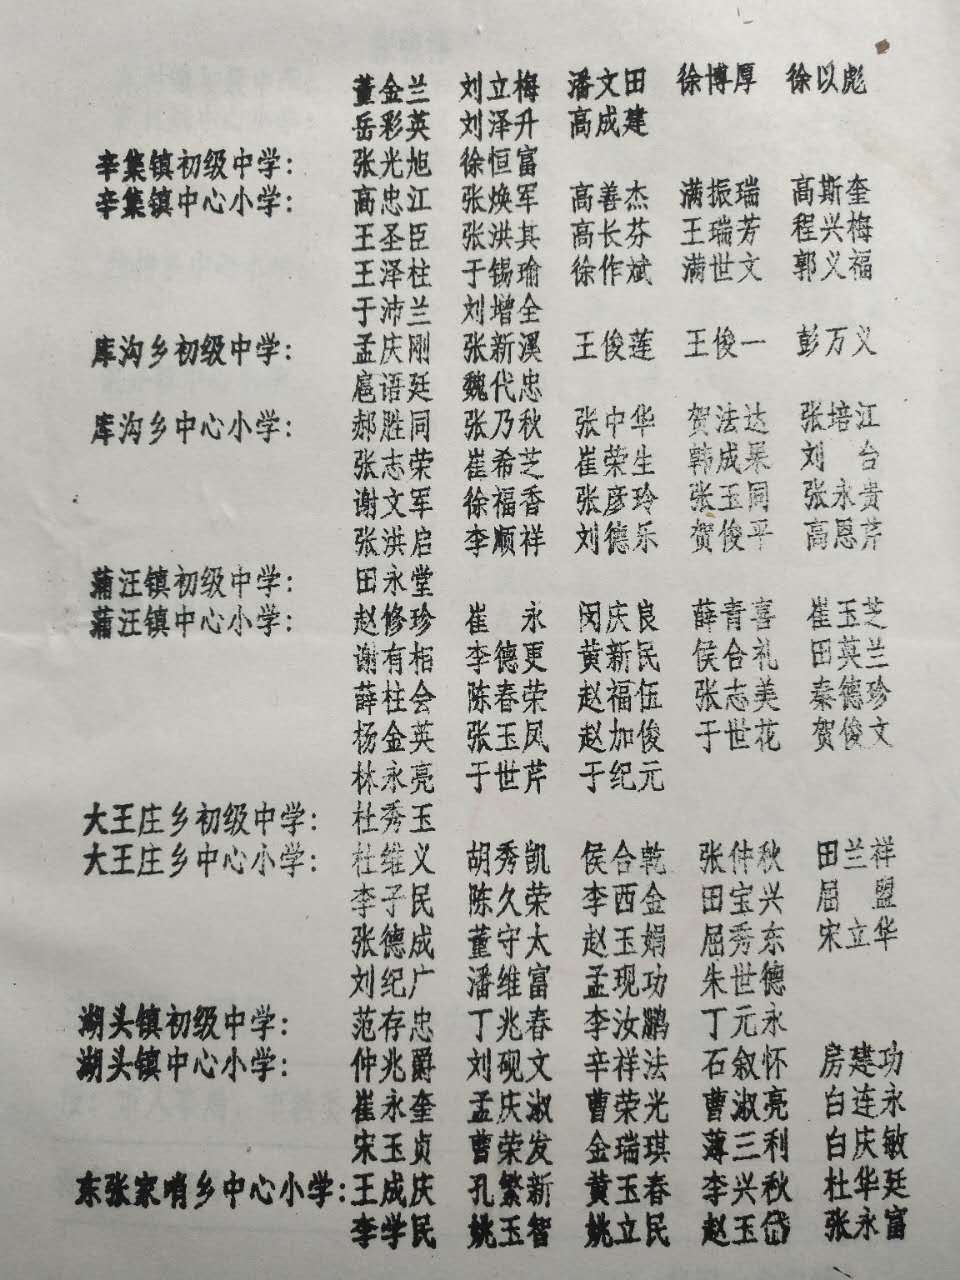 董金兰 刘立梅 潘文田 徐博厚 徐以彪
岳彩英 刘泽升 高成建
辛集镇初级中学: 张光旭 徐恒富
辛集镇中心小学: 高忠江 张焕军 高善杰 满振瑞 高斯奎
王圣臣 张洪其 高长芬 王瑞芳 程兴梅
王泽柱 于锡瑜 徐作斌 满世文 郭义福
于沛兰 刘增全
库沟乡初级中学: 孟庆刚 张新溪 王俊莲 王俊一 彭万义
扈语廷 魏代忠
库沟乡中心小学: 郝胜同 张乃秋 张中华 贺法达 张培江
张志荣 崔希芝 崔荣生 韩成果 刘 台
谢文军 徐福香 张彦玲 张玉同 张永贵
张洪启 李顺祥 刘德乐 贺俊平 高恩芹
蒲汪镇初级中学: 田永堂
蒲汪镇中心小学: 赵修珍 崔 永 闵庆良 薛青喜 崔玉芝
谢有相 李德更 黄新民 侯合礼 田英兰
薛柱会 陈春荣 赵福伍 张志美 秦德珍
杨金英 张玉凤 赵加俊 于世花 贺俊文
林永亮 于世芹 于纪元
大王庄乡初级中学: 杜秀玉
大王庄乡中心小学: 杜维义 胡秀凯 侯合乾 张仲秋 田兰祥
李子民 陈久荣 李西金 田宝兴 屈 盟
张德成 董守太 赵玉娟 屈秀东 宋立华
刘纪广 潘维富 孟现功 朱世德
湖头镇初级中学: 范存忠 丁兆春 李汝鹏 丁元永
湖头镇中心小学: 仲兆爵 刘砚文 辛祥法 石叙怀 房建功
崔永奎 孟庆淑 曹荣光 曹淑亮 白连永
宋玉贞 曹荣发 金瑞琪 薄三利 白庆敏
东张家哨乡中心小学: 王成庆 孔繁新 黄玉春 李兴秋 杜华廷
李学民 姚玉智 姚立民 赵玉岱 张永富